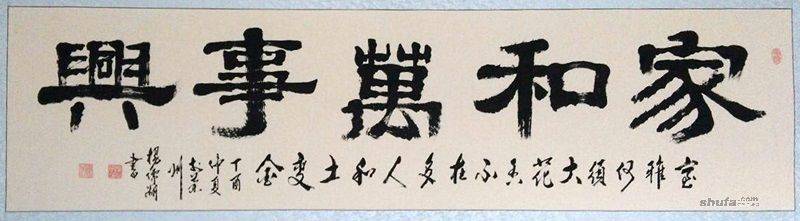 家和萬事興
室雅何須大花香不在多人和土變金
丁酉
仲夏
州
楊
書
shufa